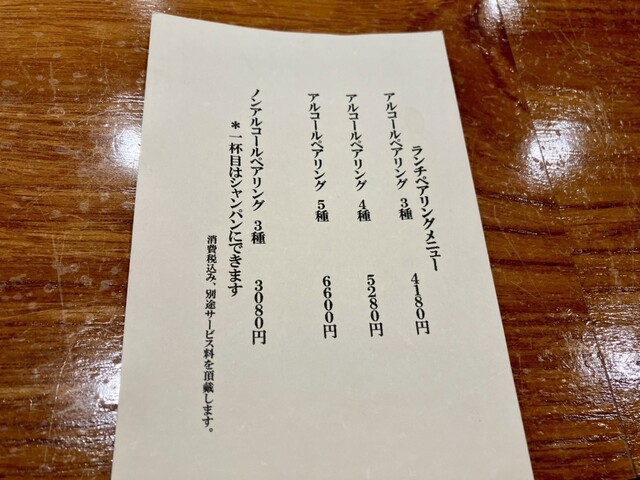 ランチペアリングメニュー
アルコールペアリング 3種 4180円
アルコールペアリング 4種 5280円
アルコールペアリング 5種 6600円
ノンアルコールペアリング 3種 3080円
＊一杯目はシャンパンにできます
消費税込み、別途サービス料を頂戴します。